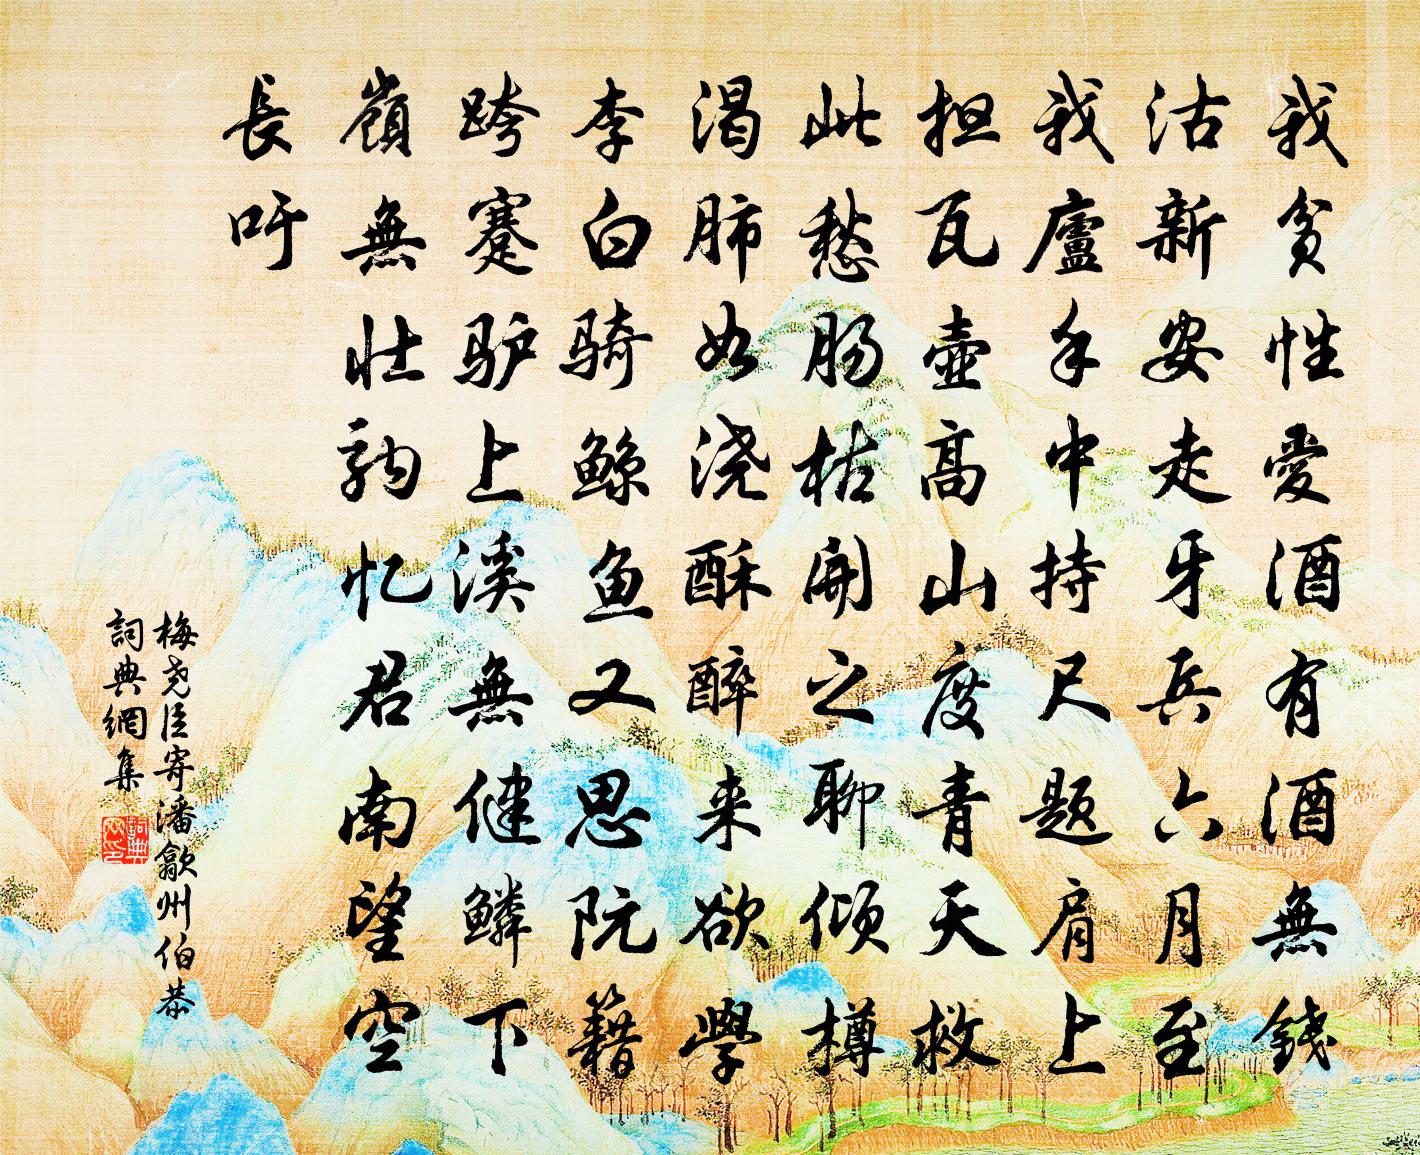 我贫性愛酒有酒無錢
沽新安走牙兵六月至
我廬手中持尺题肩上
担瓦壶高山度青天救
此愁肠枯開之聊倾樽
渴肺如浇酥醉来欲學
李白骑鲸鱼又思阮籍
跨蹇驴上溪無健鳞下
嶺無壮驹忆君南望空
長吁
梅尧臣寄潘歙州伯恭
詞典網集